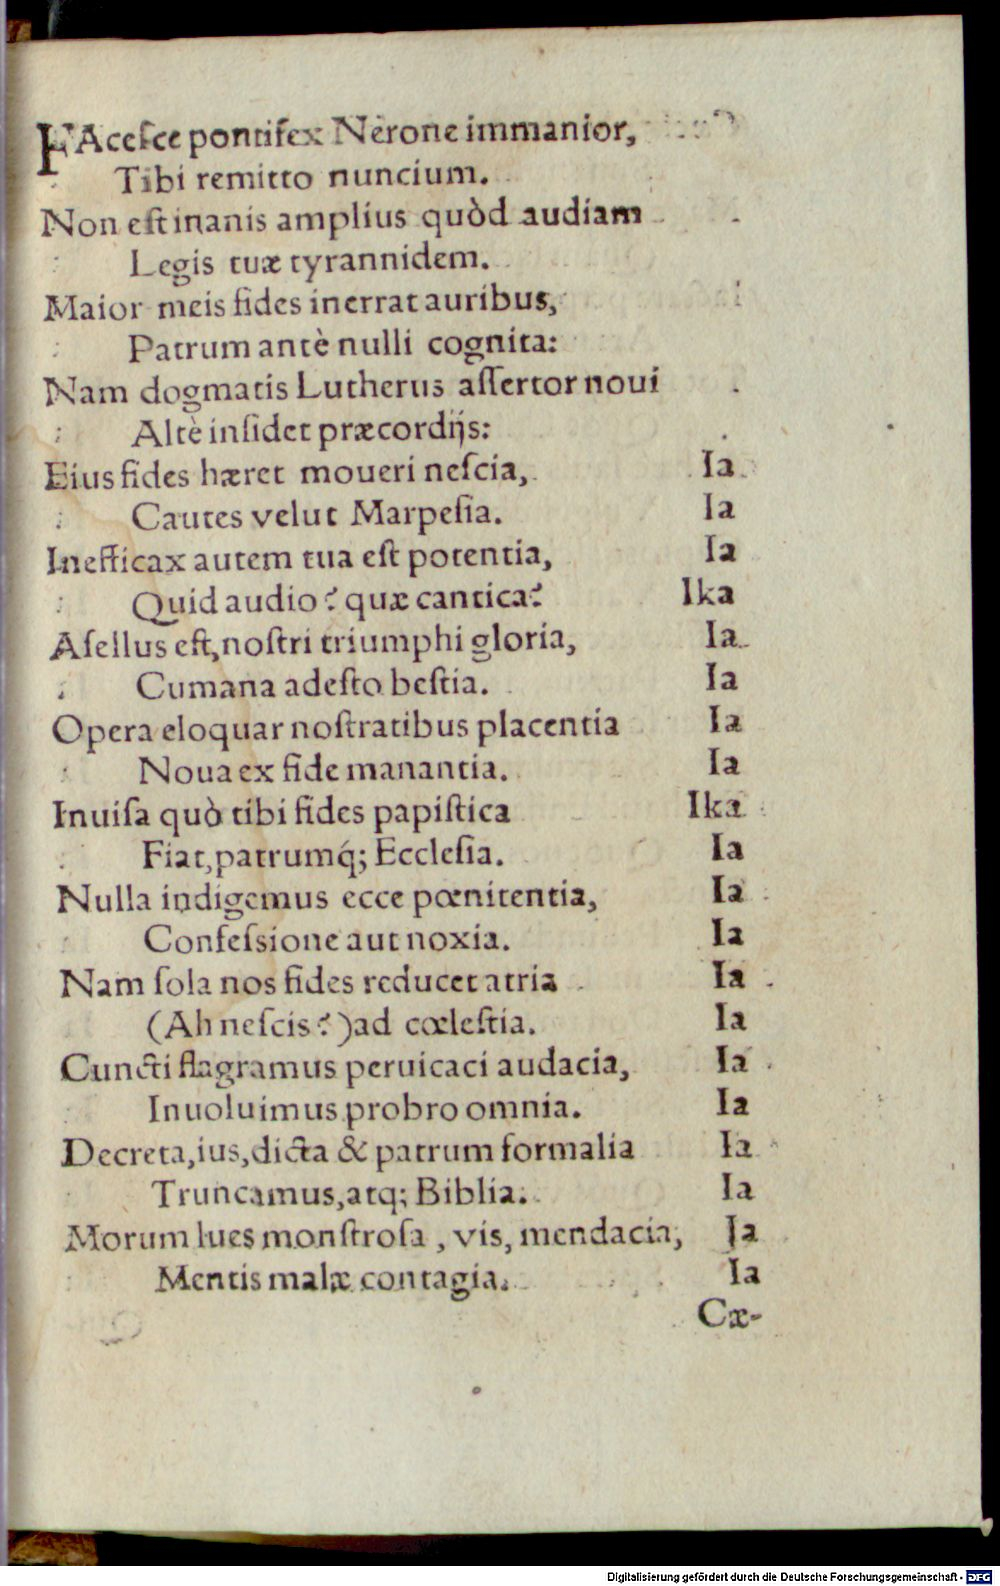 FAcesce pontifex Nerone immanior,
Tibi remitto nuncium.
Non est inanis amplius quòd audiam
Legis tuæ tyrannidem.
Maior meis fides inerrat auribus,
Patrum antè nulli cognita:
Nam dogmatis Lutherus assertor noui
Altè insidet præcordijs:
Eius fides hæret moueri nescia, Ia
Cautes velut Marpesia. Ia
Inefficax autem tua est potentia, Ia
Quid audio? quæ cantica? Ika
Asellus est, nostri triumphi gloria, Ia
Cumana adesto bestia. Ia
Opera eloquar nostratibus placentia Ia
Noua ex fide manantia. Ia
Inuisa quò tibi fides papistica Ika
Fiat, patrumq́; Ecclesia. Ia
Nulla indigemus ecce pœnitentia, Ia
Confessione aut noxia. Ia
Nam sola nos fides reducet atria Ia
(Ah nescis?) ad cœlestia. Ia
Cuncti flagramus peruicaci audacia, Ia
Inuoluimus probro omnia. Ia
Decreta, ius, dicta & patrum formalia Ia
Truncamus, atq; Biblia. Ia
Morum lues monstrosa, vis, mendacia, Ia
Mentis malæ contagia. Ia
Cæ-
Digitalisierung gefördert durch die Deutsche Forschungsgemeinschaft - DFG